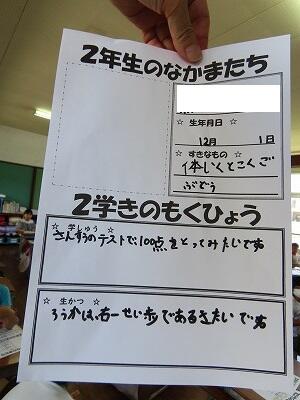 2年生のなかまたち
☆ 生年月日 ☆
12月 1日
☆ すきなもの ☆
体いくとこくご
ぶどう
2学きのもくひょう
☆ 学しゅう ☆
さんすうのテストで、100点をとってみたいです
☆ 生かつ ☆
ろうかは、右一せい歩であるきたいです